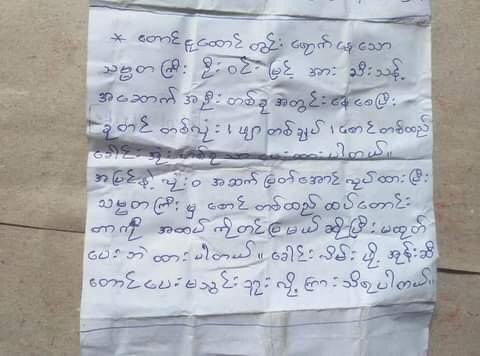 * တောင်ငူထောင် တွင်း ရောက်နေသော
သမ္မတကြီး ဦးဝင်းမြင့် အား သီးသန့်
အဆောက်အဦး တစ်ခု အတွင်း နေစေပြီး
ခုတင် တစ်လုံး ၊ ဖျာတစ်ချပ် ၊ စောင်တစ်ထည်
ခေါင်းအုံး တစ်လုံးသာ ပေးထားပါတယ်။
အပြင်နဲ့ လုံးဝ အဆက်ဖြတ်အောင် လုပ်ထားပြီး
သမ္မတကြီး မှ စောင်တစ်ထည် ထပ်တောင်း
တာကို အထပ်ကိုတင်ပြမယ် ဆိုပြီး မထုတ်
ပေးဘဲ ထားပါတယ်။ ခေါင်းလိမ်းဖို့ အုန်းဆီ
တောင်ပေးမသွင်းဘူး လို့ ကြားသိရပါတယ်။